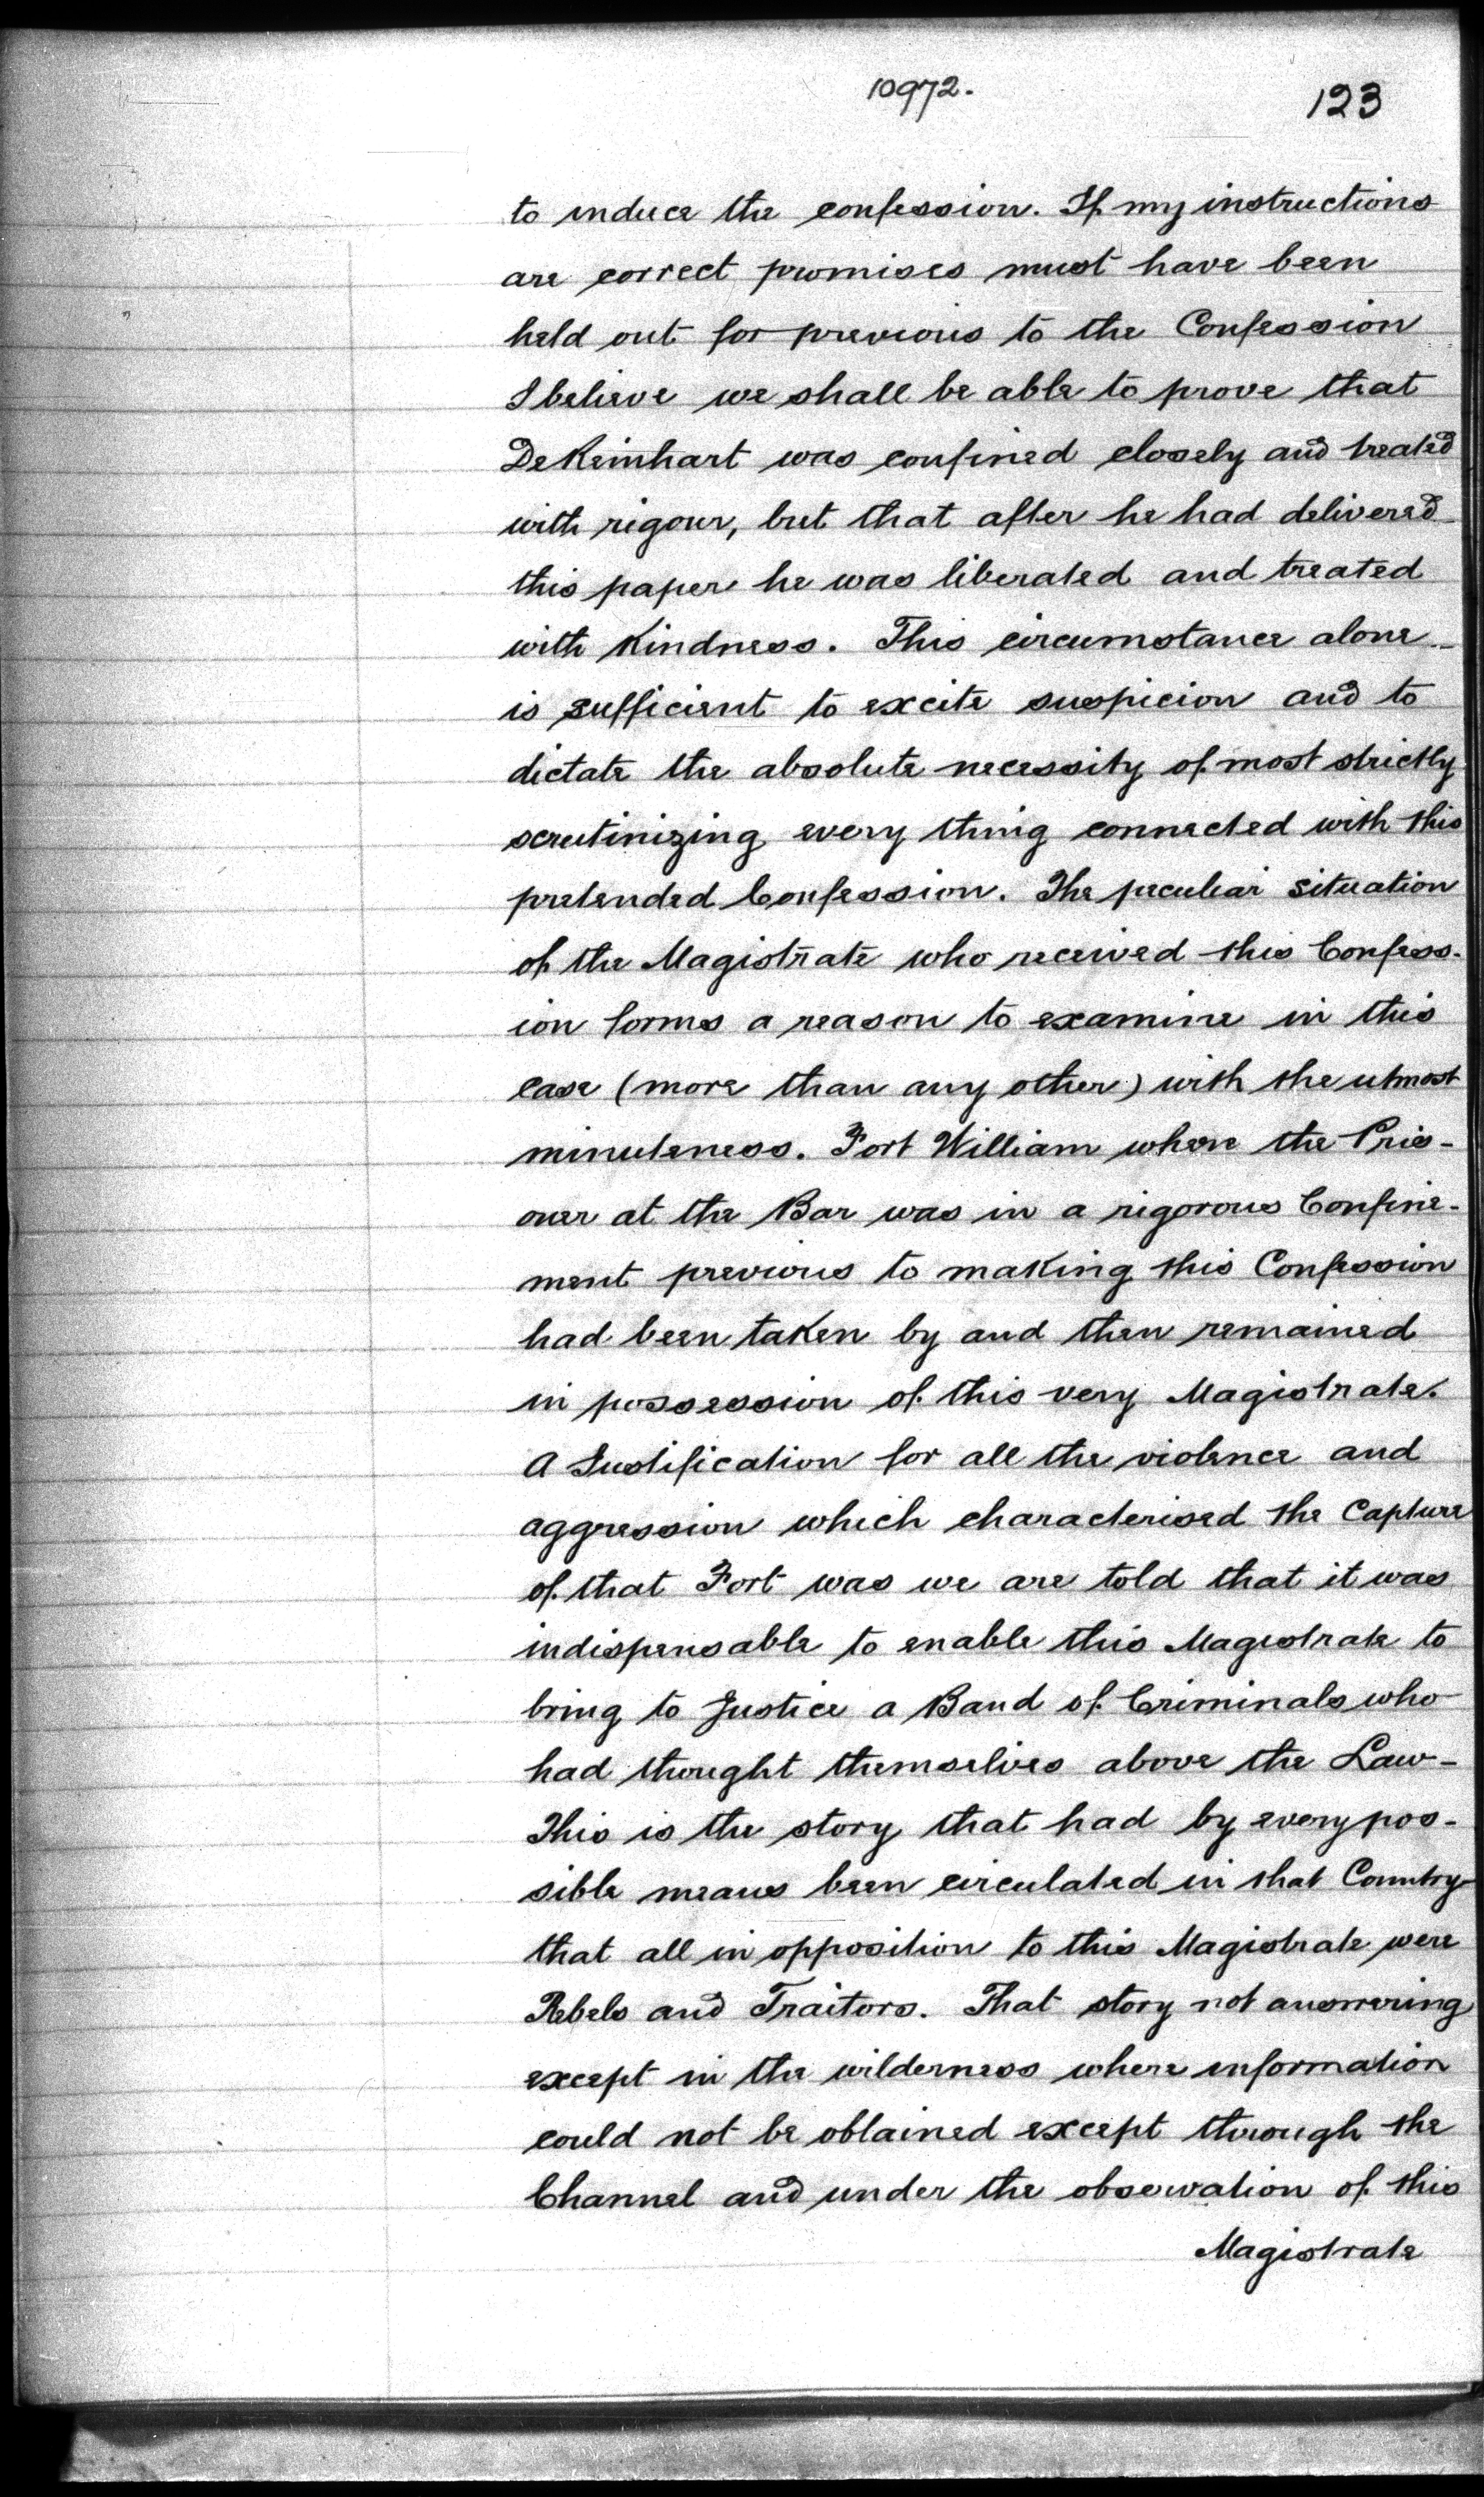 10972.
123
to induce the confession. If my instructions
are correct promises must have been
held out for previous to the Confession
I believe we shall be able to prove that
DeReinhart was confined closely and treated
with rigour, but that after he had delivered
this paper he was liberated and treated
with Kindness. This circumstance alone
is sufficient to excite suspicion and to
dictate the absolute necessity of most strictly
scrutinizing every thing connected with this
pretended Confession. The peculiar situation
of the Magistrate who received this Confess-
ion forms a reason to examine in this
case (more than any other) with the utmost
minuteness. Fort William where the Pris-
oner at the Bar was in a rigorous Confine-
ment previous to making this Confession
had been taken by and then remained
in possession of this very Magistrate.
A Justification for all the violence and
aggression which characterised the Capture
of that Fort was we are told that it was
indispensable to enable this Magistrate to
bring to Justice a Band of Criminals who
had thought themselves above the Law-
This is the story that had by every pos-
sible means been circulated in that Country
that all in opposition to this Magistrate were
Rebels and Traitors. That story not answering
except in the wilderness where information
could not be obtained except through the
Channel and under the observation of this
Magistrate